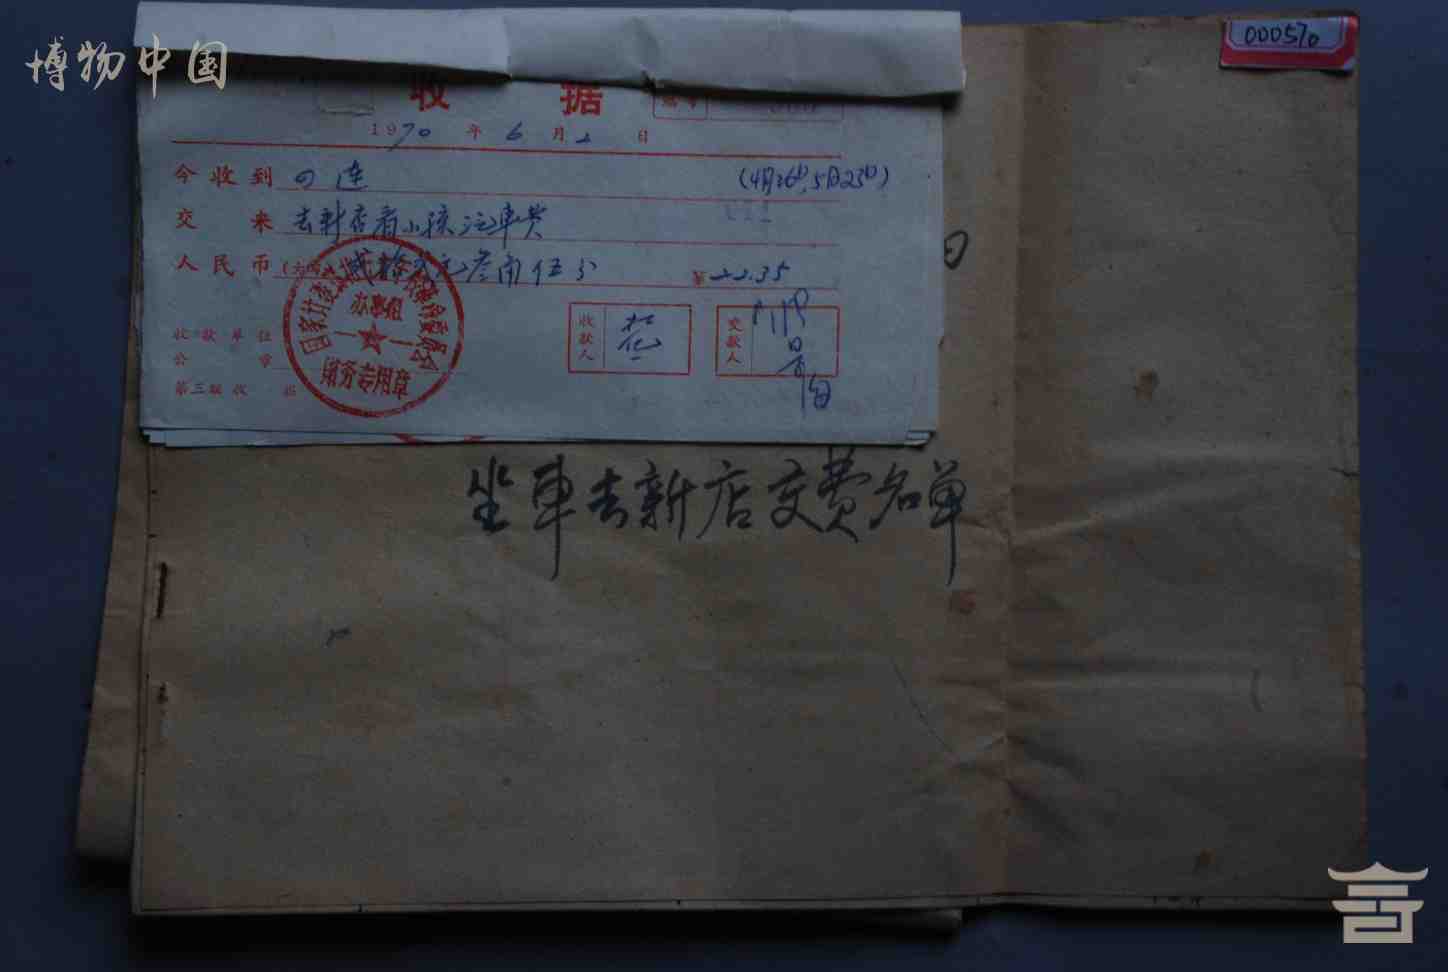 博物中国
000570
收 据
1970 年 6 月 2 日
今收到 四连 (4月26日,5月23日)
交 来 去新店看小孩汽车费
人民币 贰拾贰元叁角伍分 ¥22.35
办事组
财务专用章
收款单位
公 章
第三联 收 据
收款人
交款人
坐车去新店交费名单